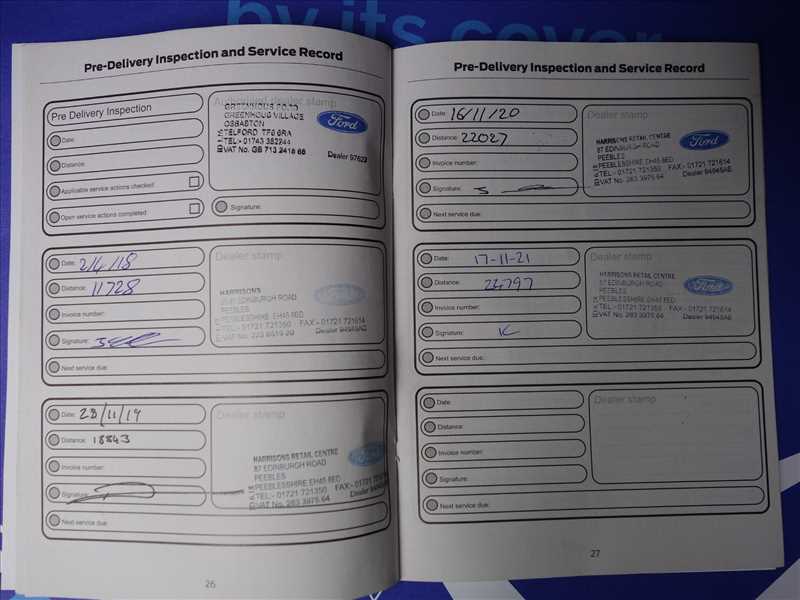 by its cover
Pre-Delivery Inspection and Service Record
Pre Delivery Inspection
Date:
Distance:
Applicable service actions checked
Open service actions completed
Authorised dealer stamp
GREENHOUS VILLAGE
OSBASTON
TELFORD TF6 6RA
TEL - 01743 352244
VAT No. GB 713 2418 66
Ford
Dealer 97623
Signature:
Date: 2/4/18
Distance: 11728
Invoice number:
Signature:
Next service due:
Dealer stamp
HARRISONS
EDINBURGH ROAD
PEEBLES
PEEBLESSHIRE EH45
TEL - 01721 721350 FAX - 01721 721614
Ford
Date: 28/11/19
Distance: 18843
Invoice number:
Signature:
Next service due:
Dealer stamp
HARRISONS RETAIL CENTRE
87 EDINBURGH ROAD
PEEBLES
PEEBLESSHIRE EH45 8ED
TEL - 01721 721350 FAX - 01721
VAT No. 263 3975 64
Ford
26
Pre-Delivery Inspection and Service Record
Date: 16/11/20
Distance: 22027
Invoice number:
Signature:
Next service due:
Dealer stamp
HARRISONS RETAIL CENTRE
87 EDINBURGH ROAD
PEEBLES
PEEBLESSHIRE EH45 8ED
TEL - 01721 721350 FAX - 01721 721614
VAT No. 263 3975 64 Dealer 94945AB
Ford
Date: 17-11-21
Distance: 24797
Invoice number:
Signature:
Next service due:
Dealer stamp
HARRISONS RETAIL CENTRE
87 EDINBURGH ROAD
PEEBLES
PEEBLESSHIRE EH45 8ED
TEL - 01721 721350 FAX - 01721 721614
VAT No. 263 3975 64 Dealer 94945AB
Ford
Date:
Distance:
Invoice number:
Signature:
Next service due:
Dealer stamp
27